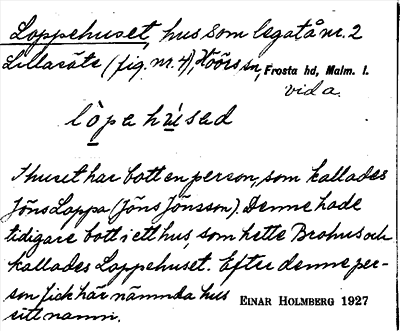 Loppehuset, hus som legat å nr. 2
Lillasäte (fig. nr. 4), Höörs sn, Frosta hd, Malm. l.
vid a.
lòpehúsad
I huset har bott en person, som kallades
Jöns Loppa (Jöns Jönsson). Denne hade
tidigare bott i ett hus, som hette Brohus och
kallades Loppehuset. Efter denne per-
son fick här nämnda hus EINAR HOLMBERG 1927
sitt namn.